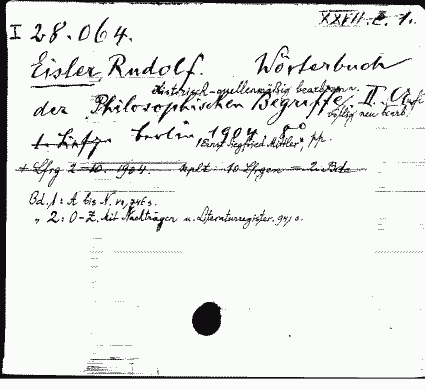 XXVII. E. 1.
I 28.064.
Eisler, Rudolf. Wörterbuch
historisch-quellenmäßig bearb.
der Philosophischen Begriffe. II. Aufl.
völlig neu bearb.
1. Liefg. Berlin 1904. 8°. pp.
(Ernst Siegfried Mittler)
+ Lfrg 2-10. 1904. kplt 10 Lfrgen = 2 Bde
Bd. 1: A bis N. VII, 746 s.
„ 2: O-Z. Mit Nachträgen u. Literaturregister. 941 s.